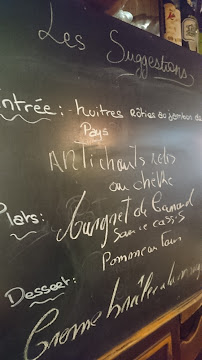 Les Suggestions
Entrée: - huitres rôties au jambon de
Pays
Artichauts rôtis
au chèvre
Plats: Magret de Canard
Sauce cassis
Pomme au Four
Dessert:
Crème brulée à la